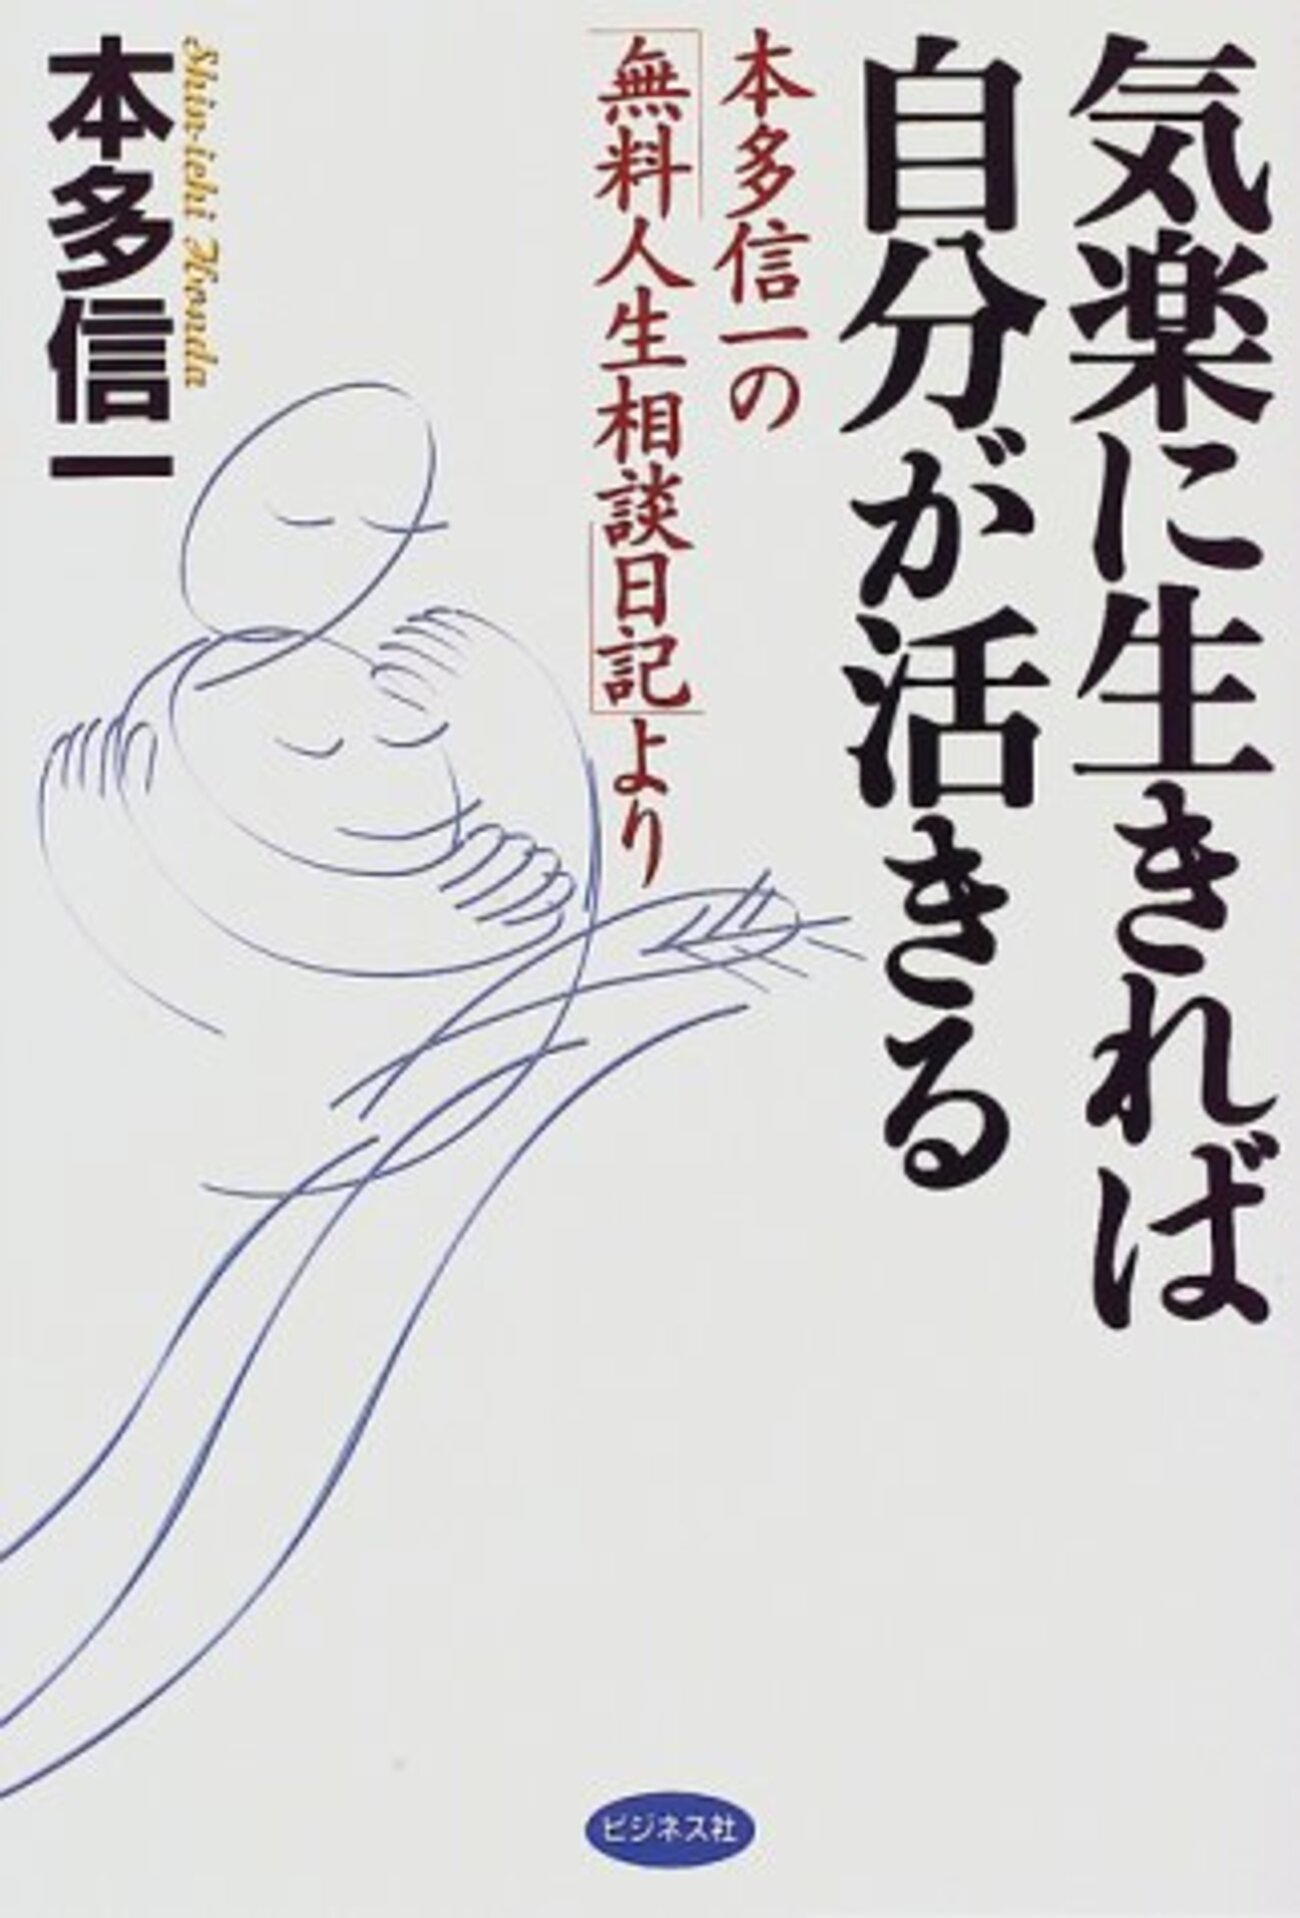 気楽に生きれば
自分が活きる
本多信一の
「無料人生相談日記」より
Shin-ichi Honda
本多信一
ビジネス社